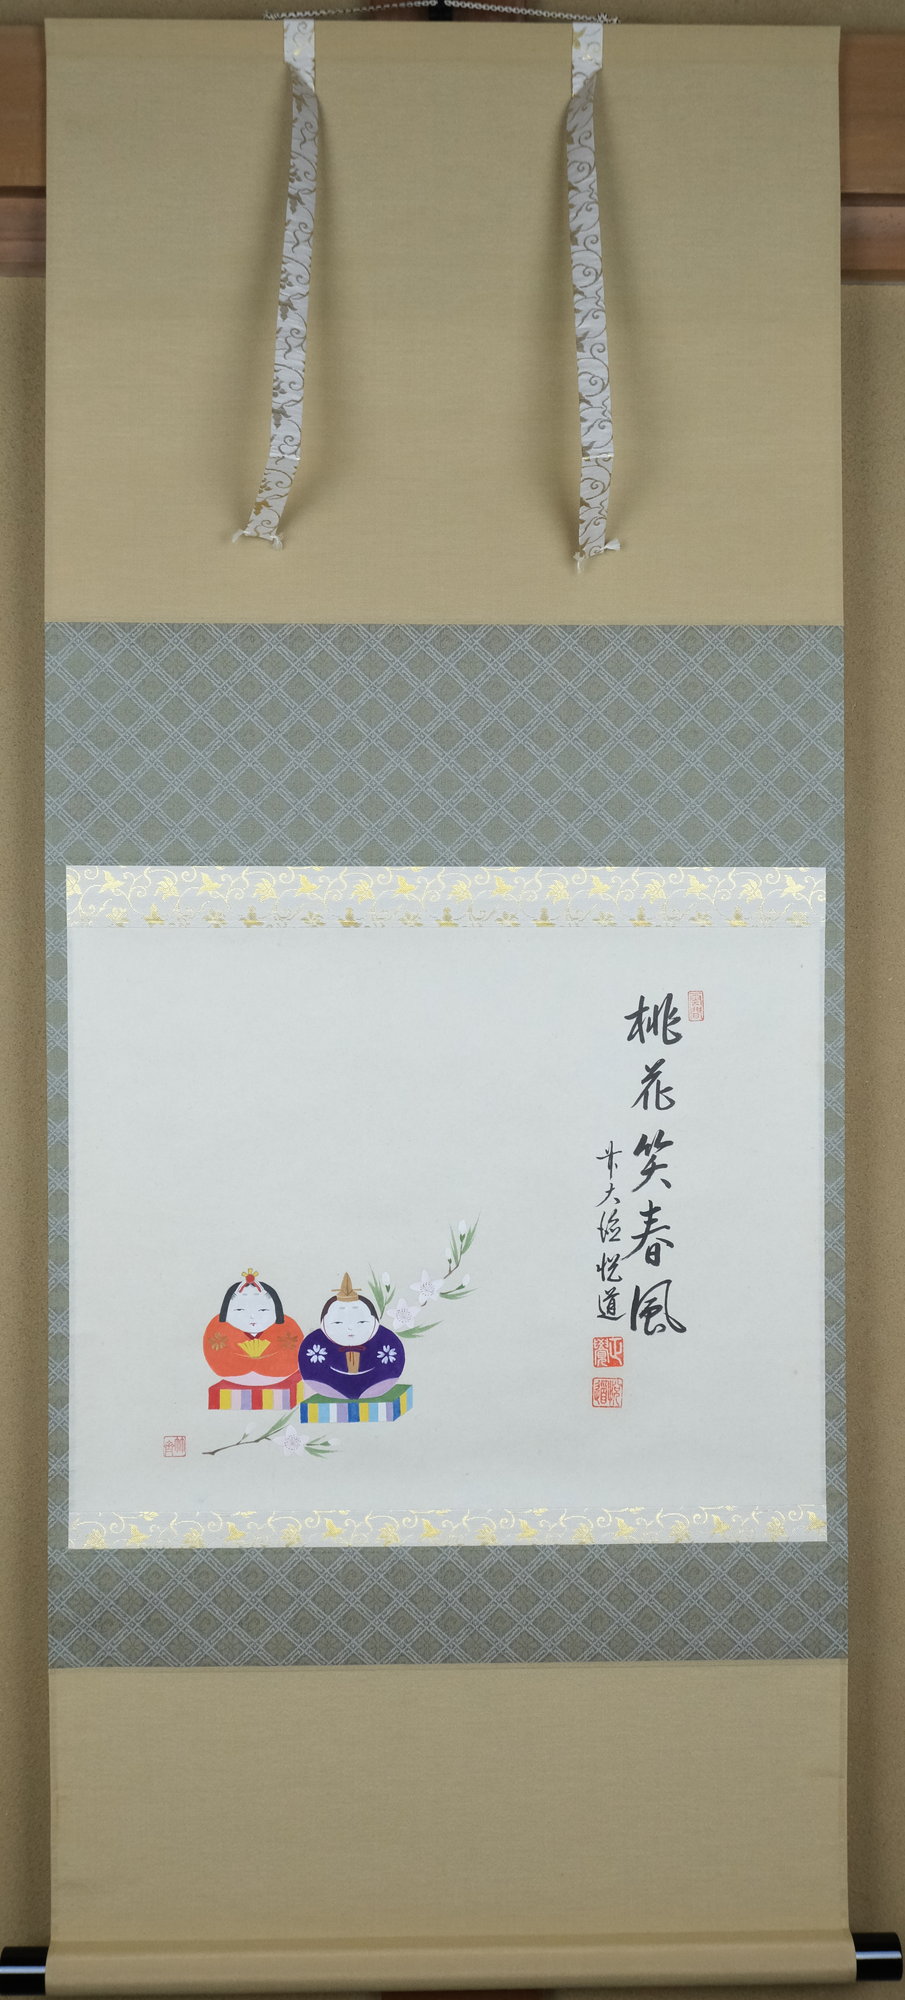 桃花笑春風
紫大徳悦道